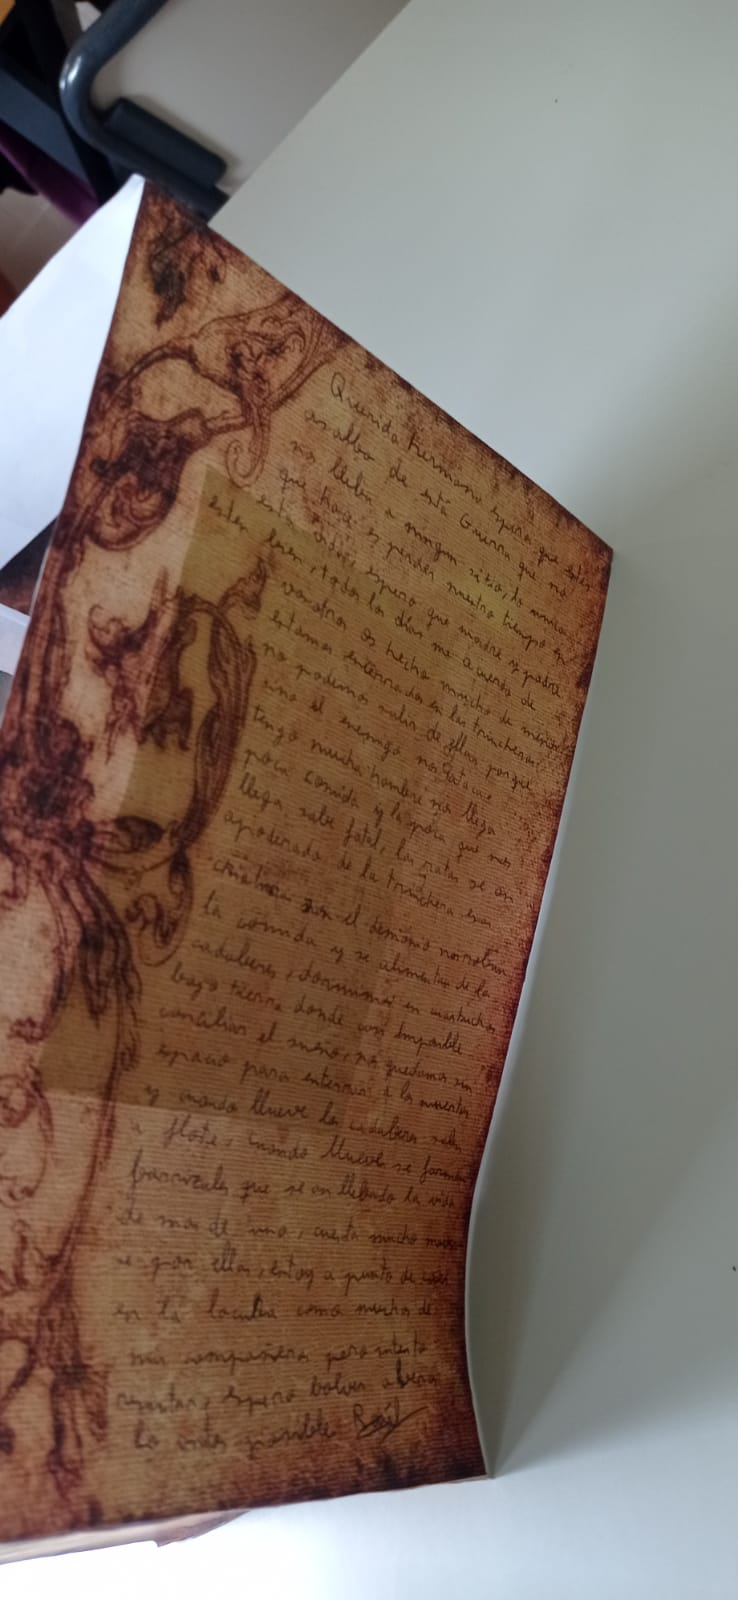 Querido hermano espero que estes
asalbo de está Guerra que no
nos lleba a ningun sitio, lo unico
que hace es perder nuestro tiempo en
está vida, espero que madre y padre
esten bien, todos los días me acuerdo de
vosotros os hecho mucho de menos
estamos enterrados en las trincheras
no podemos salir de ellas porque
sino el enemigo nos ataca
tengo mucha hambre nos llega
poca comida y la poca que nos
llega sabe fatal, las ratas se an
apoderado de la trinchera esas
criaturas son el demonio nos roban
la comida y se alimentan de los
cadaberes, dormimos en
bajo tierra donde es imposible
conciliar el sueño, nos quedamos sin
espacio para enterrar a los muertos
y cuando llueve los cadaberes salen
a flote, cuando llueve se forman
barrizales que se an llebado la vida
de mas de uno, cuesta mucho
por ellos, estoy a punto de caer
en la locura como muchos de
mis compañeros pero intento
espero bolver a veros
lo antes posible Raúl